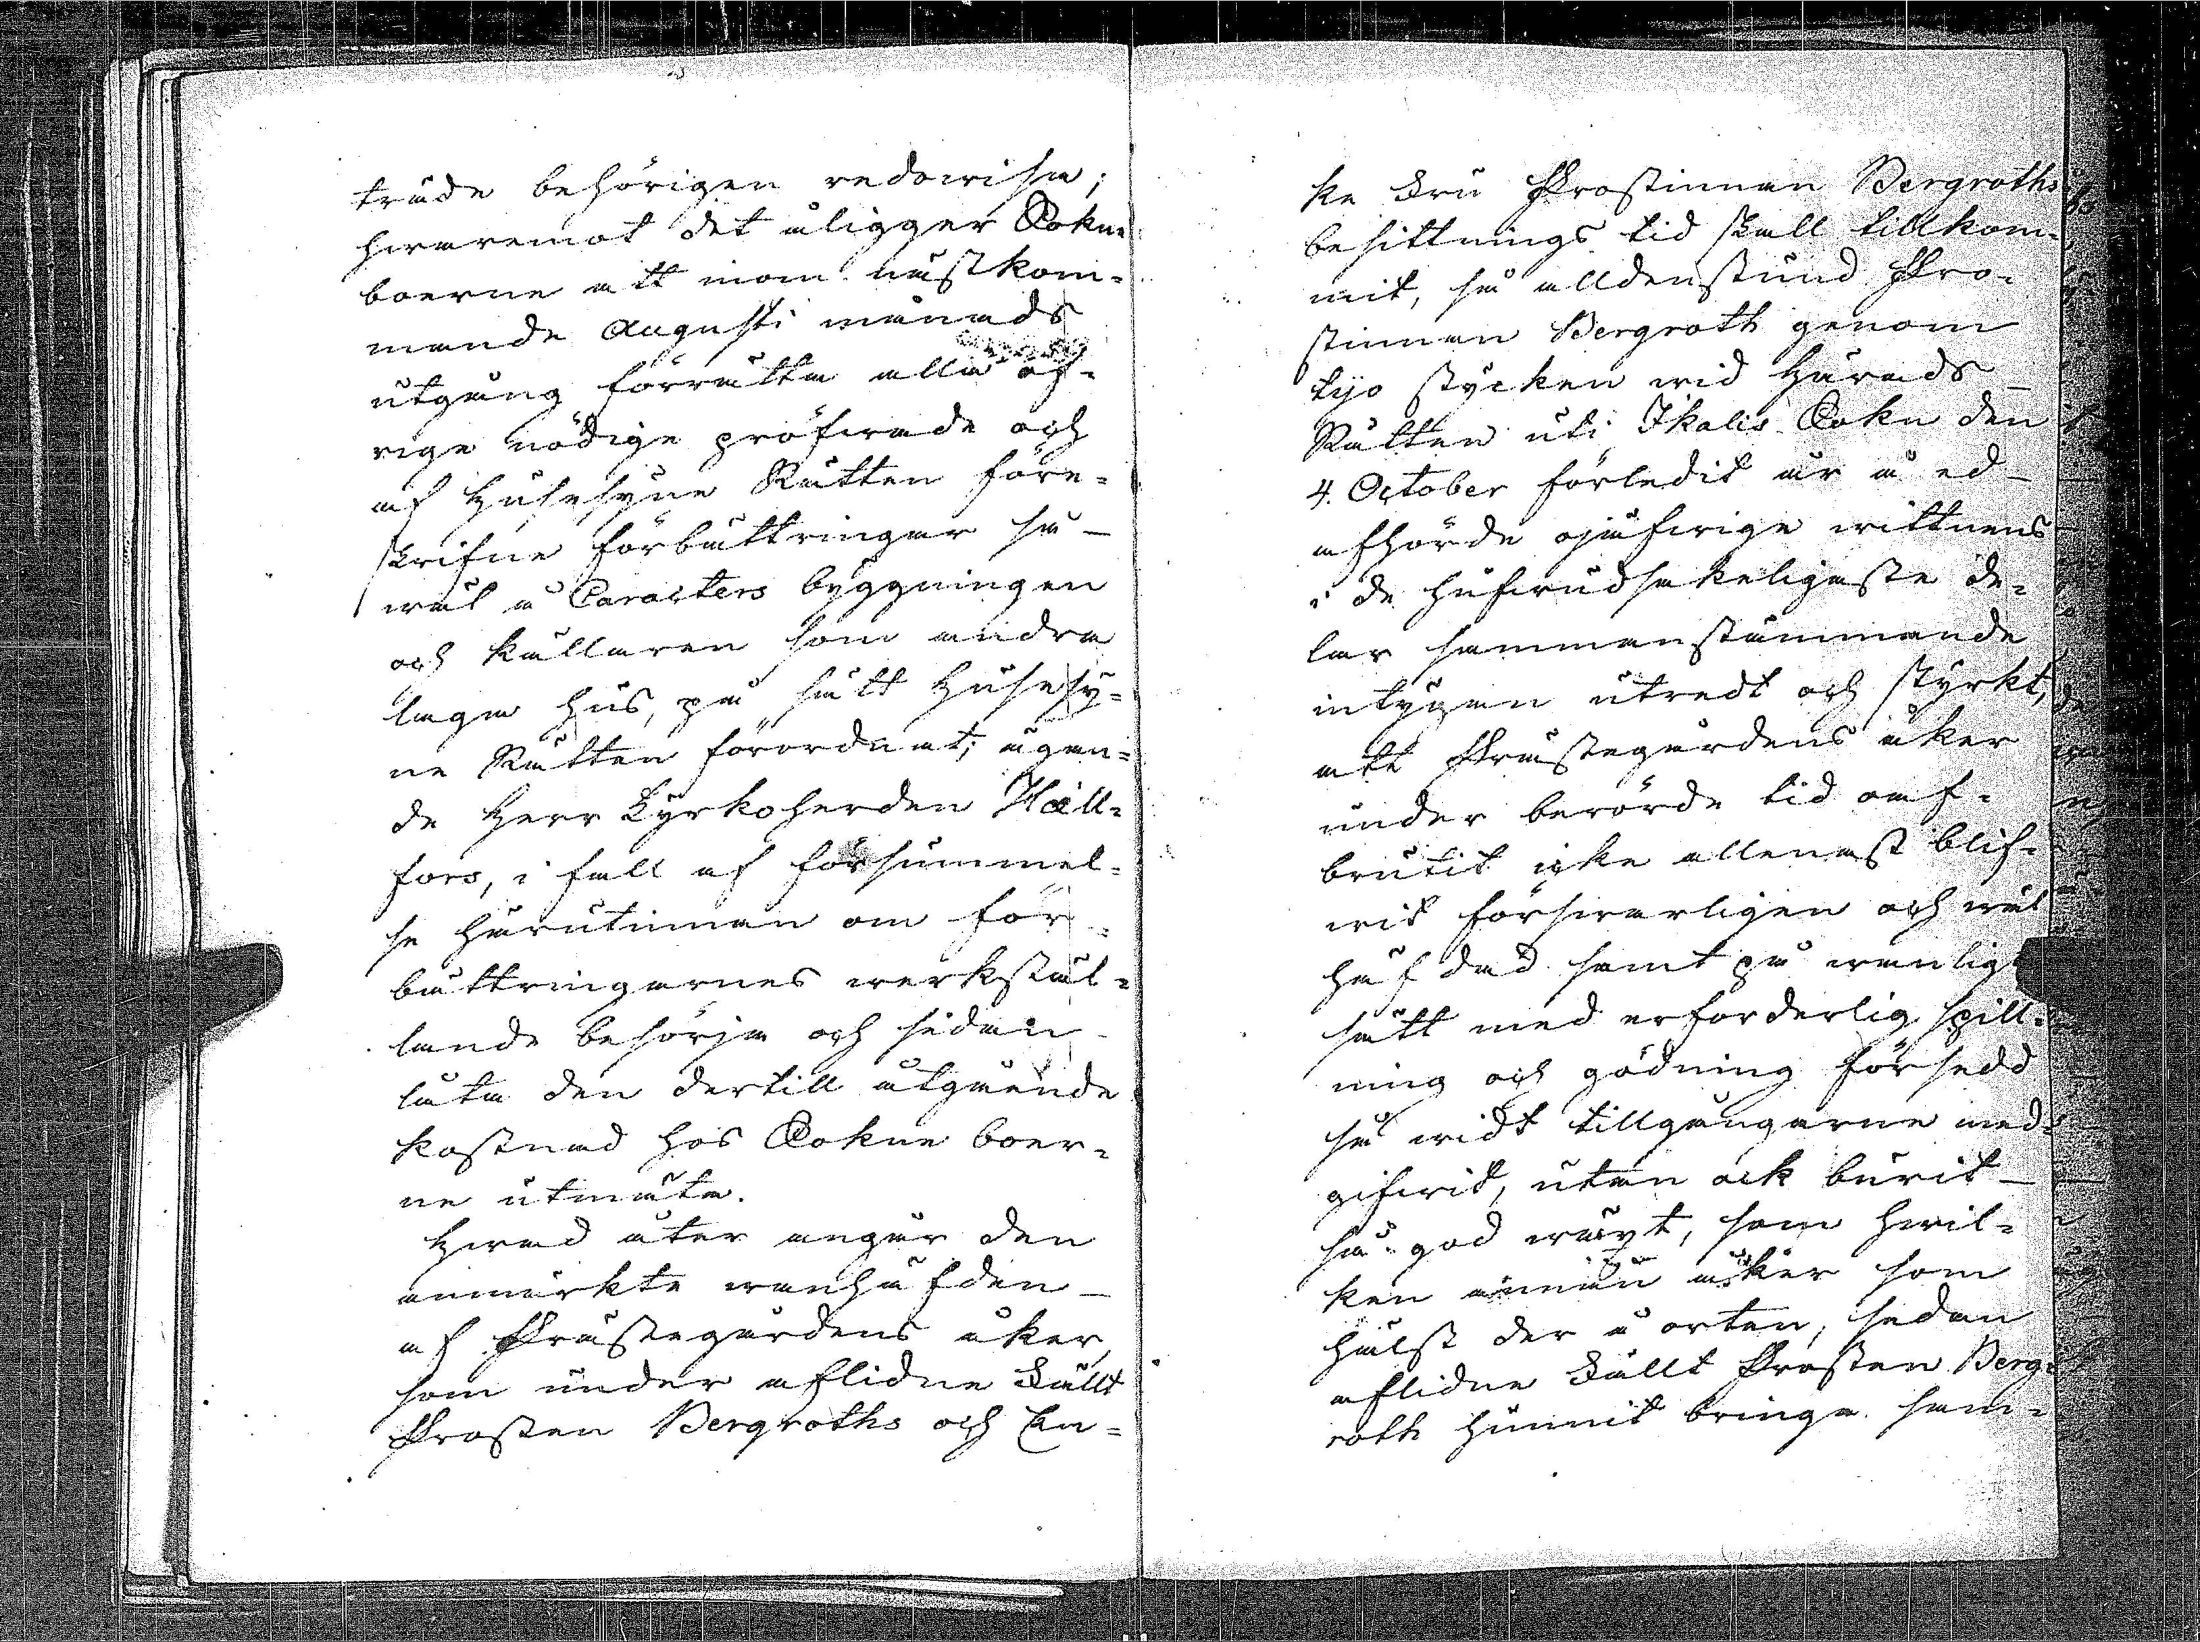 träde behörigen redowisa;
hwaremot det åligger Sokne¬
boerne att inom nästkom=
mande Augusti månads
utgång förrätta alla öf¬
rige nödige pröfwade och
af Husesyne Rätten före=
skrifne förbättringar så¬
wäl å Caracters byggningen
och källaren som andre
laga hus, på sätt Husesy=
ne Rätten förordnat; ägan=
de Herr Kyrkoherden Häll=
fors, i fall af försummel=
se härutinnan om för=
bättringarnes werkstäl=
lande besörja och sedan
låta den dertill åtgående
kostnad hos Sokne boer=
ne utmäta.
Hwad åter angår den
anmärkte wanhäfden
af Prästegårdens åker,
som under aflidne Fält
Prosten Bergroths och En=
ke Fru Prostinnan Bergroths
besittnings tid skall tillkom=
mit, så alldenstund Pro=
stinnan Bergroth genom
tijo stycken wid Härads
Rätten uti Ikalis Sokn den
4. October förledit år å ed
afhörde ojäfwige wittnens
i de hufwudsakeligaste de=
lar sammanstämmande
intygan utredt och styrkt,
att Prästegårdens åker
under berörde tid oaf=
brutit icke allenast blif=
wit förswarligen och wäl
häfdad samt på wanligt
sätt med erforderlig spill=
ning och gödning försedd
så widt tillgångarne med=
gifwit, utan ock burit
så god wäxt, som hwil=
ken annan åker som
hälst der å orten, sedan
aflidne Fällt Prosten Berg=
roth hunnit bringa sam=